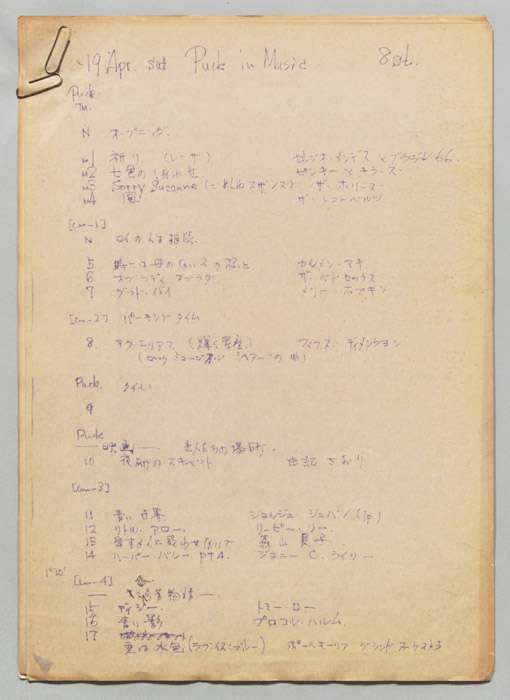 19 Apr. sat Puck in Music 8st.
Puck
TM.
N オープニング.
M1 祈り. (レーザ) セルジオ・メンデス とブラジル66.
M2 七色のしあわせ. ピンキーとキラーズ
M3 Sorry Suzanne (ごめんねスザンヌ) ザ・ホリーズ
M4 風 ザ・シューベルツ
[cm-1]
N 人生相談.
5 時には母のない子の様に カルメン・マキ
6 オブラディ オブラダ ザ・ベドロックス
7 グッド・バイ メリー・ホプキン
[cm-2] パーキング タイム
8. アクエリアス (輝く星座.) フィフス・ディメンション
(ロックミュージカル "ヘアー"の中)
Puck. タイム
9
Puck
― 映画 ―
10 夜明けのスキャット 由紀さおり
[cm-3]
11 青い 世界 ジョルジュ・ジュバン (Tp)
12 リトル・アロー. リーピー・リー.
13 愛する人に歌わせないで 森山良子
14 ハーパー・バレー P.T.A. ジニー C. ライリー
1°30' [cm-4]
― 物語 ―
15 ディジー. トミー・ロー
16 青い影 プロコル・ハルム.
17
恋は水色 (ラブ・イズ・ブルー) ポールモーリア グランド オーケストラ